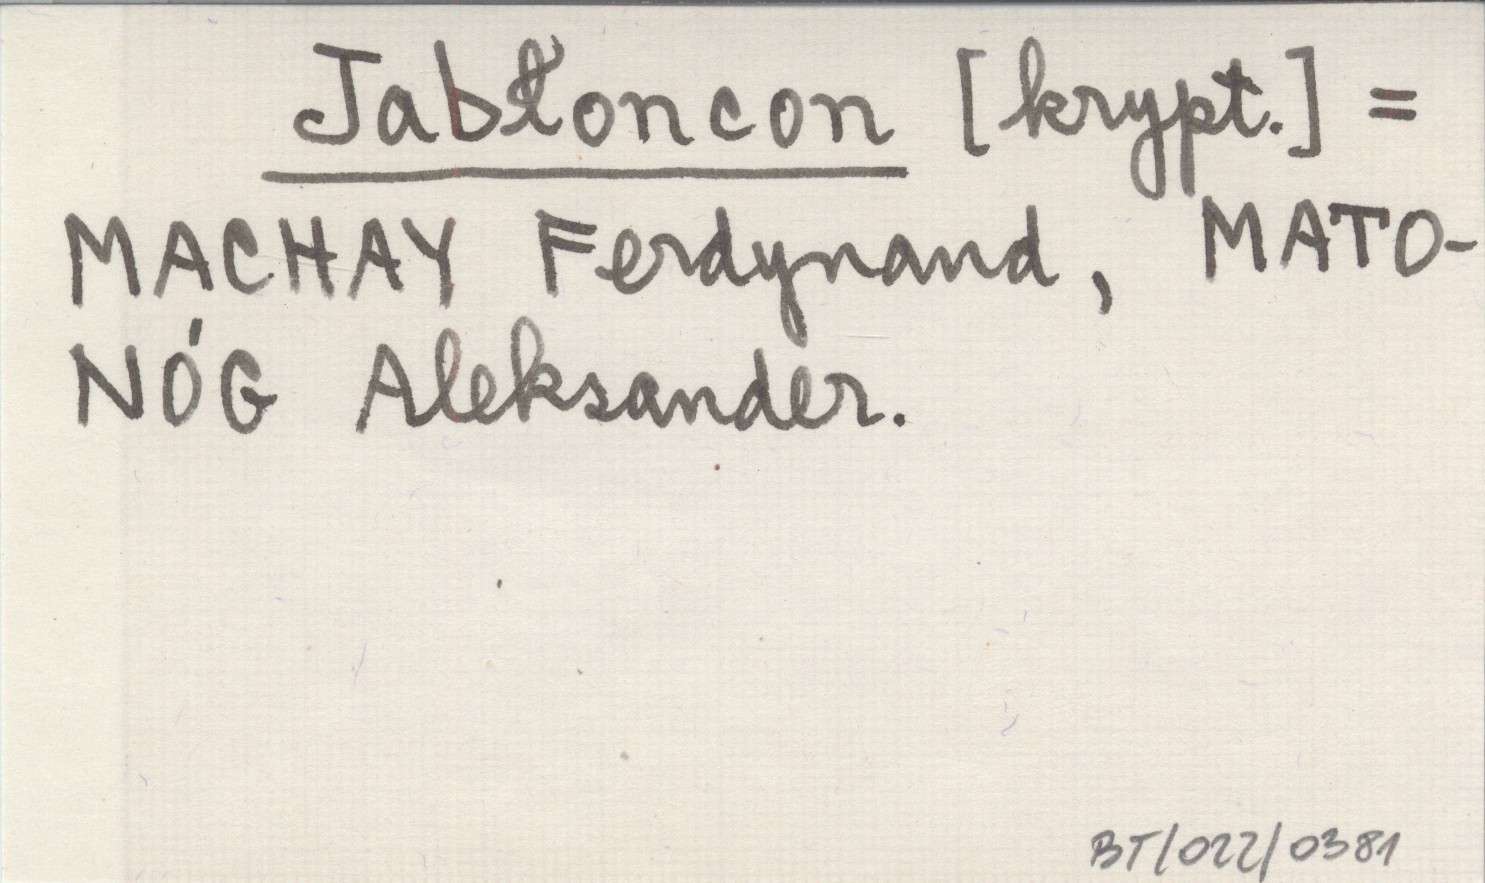 Jabłoncon [krypt.] =
MACHAY Ferdynand, MATO-
NÓG Aleksander.
BT/022/0381